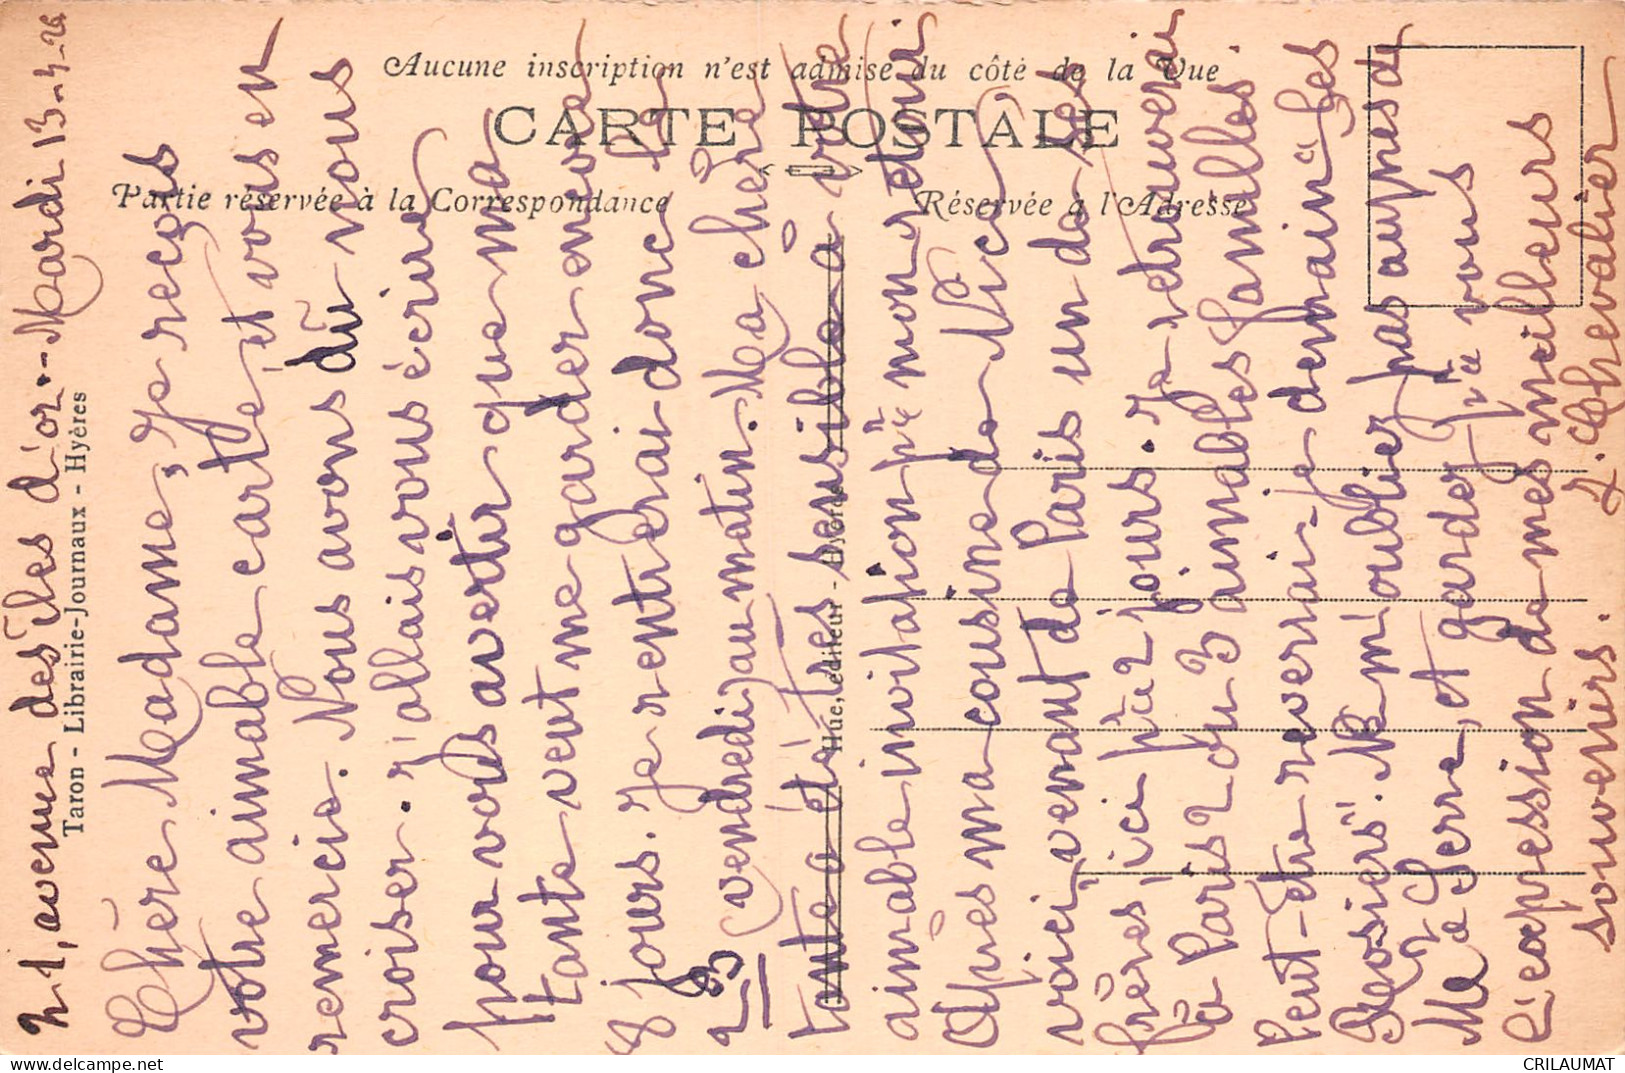 21, avenue des Iles d'or. - Mardi 13-4-26
Chère Madame, Je reçois
votre aimable carte et vous en
remercie. Nous avons dû nous
croiser. J'allais vous écrire
pour vous avertir que ma
tante veut me garder encore
8 jours. Je rentrerai donc le
23 vendredi, au matin. Ma chère
tante a été très sensible à votre
aimable invitation, mon
Après ma cousine de Nice,
voici, venant de Paris un de ses
frères, ici 2 jours. Je retrouverai
à Paris 2 ou 3 aimables familles.
Peut-être reverrai-je demain "les
Rosiers". Ne m'oubliez pas auprès de
Me Serre, et gardez vous
l'expression de mes meilleurs
souvenirs.
J. Chevalier
Aucune inscription n'est admise du côté de la Vue
CARTE POSTALE
Partie réservée à la Correspondance
Réservée à l'Adresse
Taron - Librairie-Journaux - Hyères
Hue, éditeur -
CRILAUMAT